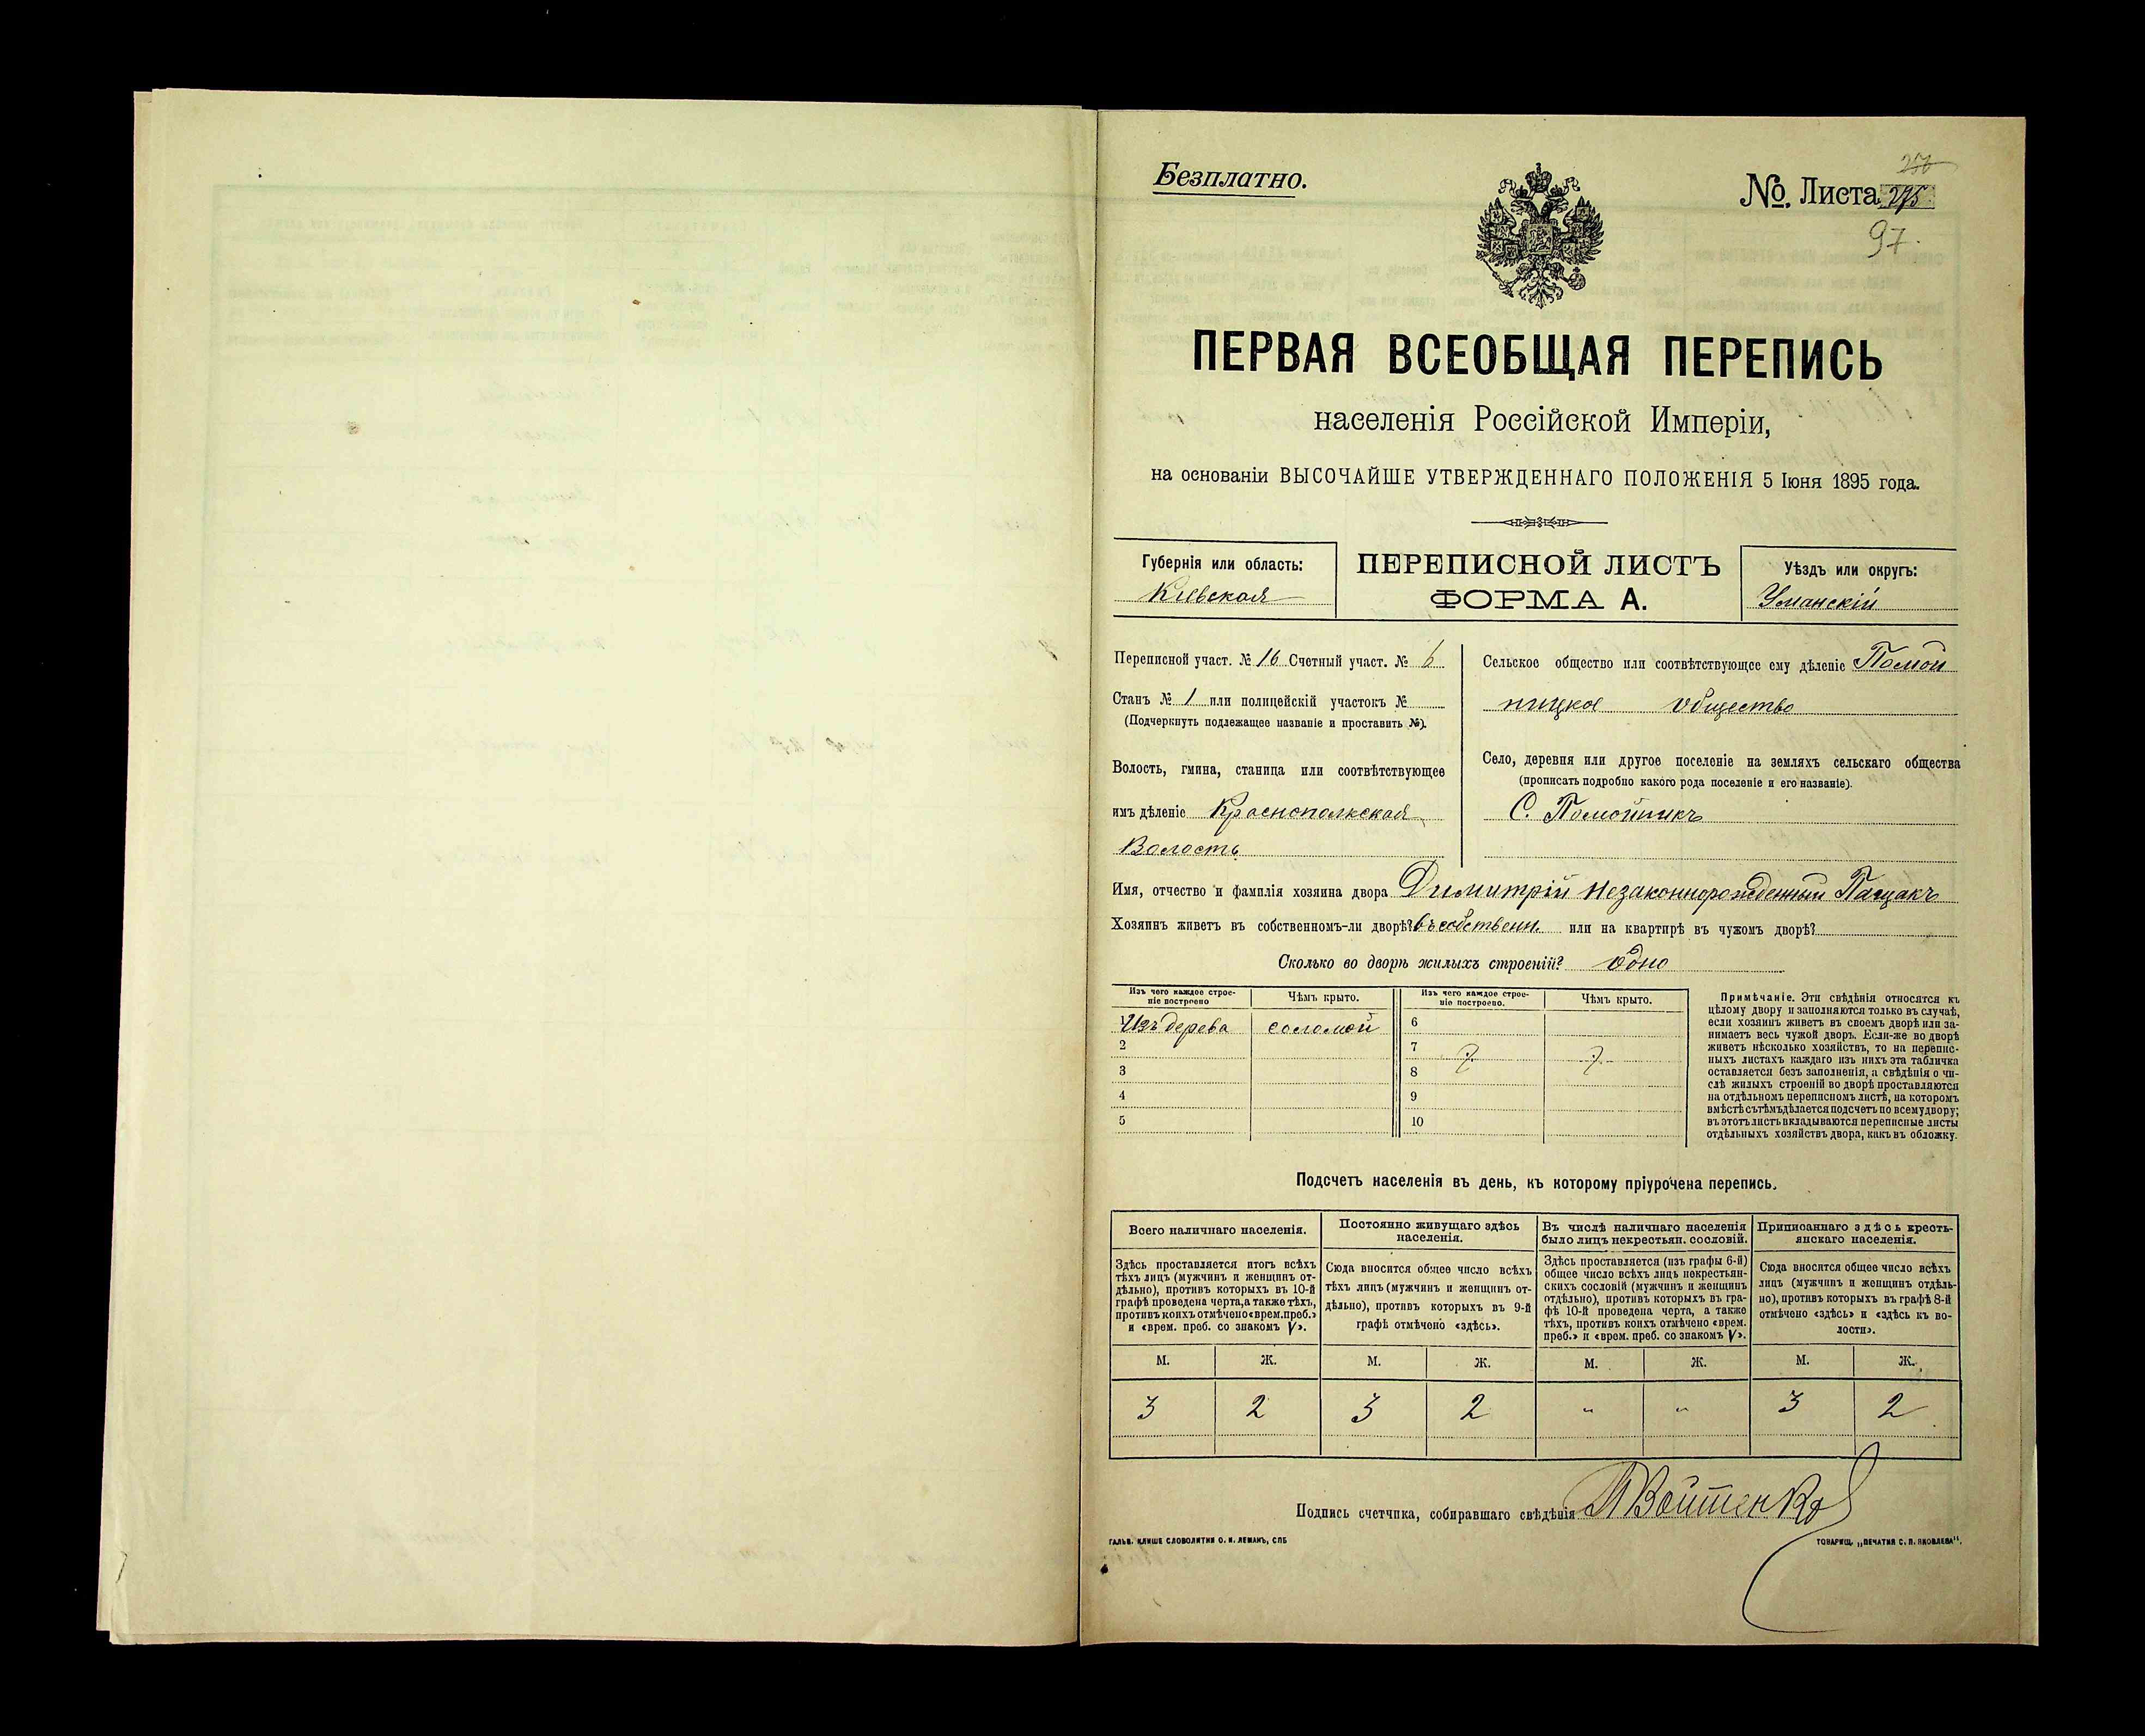 Безплатно.
№ Листа 275
250
97.
ПЕРВАЯ ВСЕОБЩАЯ ПЕРЕПИСЬ
населенія Россійской Имперіи,
на основаніи ВЫСОЧАЙШЕ УТВЕРЖДЕННАГО ПОЛОЖЕНІЯ 5 Іюня 1895 года.
Губернія или область:
Кіевская
ПЕРЕПИСНОЙ ЛИСТЪ
ФОРМА А.
Уѣздъ или округъ:
Уманскій
Переписной участ. № 16 Счетный участ. № 6
Станъ № 1 или полицейскій участокъ №
(Подчеркнуть подлежащее названіе и проставить №).
Волость, гмина, станица или соотвѣтствующее
имъ дѣленіе Краснополкская
Волость
Сельское общество или соотвѣтствующее ему дѣленіе Помой
ницкое общество
Село, деревня или другое поселеніе на земляхъ сельскаго общества
(прописать подробно какого рода поселеніе и его названіе).
С. Помойникъ
Имя, отчество и фамилія хозяина двора Димитрій Незаконнорожденный Пащакъ
Хозяинъ живетъ въ собственномъ-ли дворѣ? въ собственн. или на квартирѣ въ чужомъ дворѣ?
Сколько во дворѣ жилыхъ строеній? одно
Изъ чего каждое строе-
ніе построено
Чѣмъ крыто.
Изъ чего каждое строе-
ніе построено.
Чѣмъ крыто.
1 Изъ дерева соломой 6
2 7
3 8
4 9
5 10
Примѣчаніе. Эти свѣдѣнія относятся къ
цѣлому двору и заполняются только въ случаѣ,
если хозяинъ живетъ въ своемъ дворѣ или за-
нимаетъ весь чужой дворъ. Если-же во дворѣ
живетъ нѣсколько хозяйствъ, то на перепис-
ныхъ листахъ каждаго изъ нихъ эта табличка
оставляется безъ заполненія, а свѣдѣнія о чи-
слѣ жилыхъ строеній во дворѣ проставляются
на отдѣльномъ переписномъ листѣ, на которомъ
вмѣстѣ съ тѣмъ дѣлается подсчетъ по всему двору;
въ этотъ листъ вкладываются переписные листы
отдѣльныхъ хозяйствъ двора, какъ въ обложку.
Подсчетъ населенія въ день, къ которому пріурочена перепись.
Всего наличнаго населенія.
Здѣсь проставляется итогъ всѣхъ
тѣхъ лицъ (мужчинъ и женщинъ от-
дѣльно), противъ которыхъ въ 10-й
графѣ проведена черта, а также тѣхъ,
противъ коихъ отмѣчено «врем. преб.»
и «врем. преб. со знакомъ V».
Постоянно живущаго здѣсь
населенія.
Сюда вносится общее число всѣхъ
тѣхъ лицъ (мужчинъ и женщинъ от-
дѣльно), противъ которыхъ въ 9-й
графѣ отмѣчено «здѣсь».
Въ числѣ наличнаго населенія
было лицъ некрестьян. сословій.
Здѣсь проставляется (изъ графы 6-й)
общее число всѣхъ лицъ некрестьян-
скихъ сословій (мужчинъ и женщинъ
отдѣльно), противъ которыхъ въ гра-
фѣ 10-й проведена черта, а также
тѣхъ, противъ коихъ отмѣчено «врем.
преб.» и «врем. преб. со знакомъ V».
Приписаннаго здѣсь кресть-
янскаго населенія.
Сюда вносится общее число всѣхъ
лицъ (мужчинъ и женщинъ отдѣль-
но), противъ которыхъ въ графѣ 8-й
отмѣчено «здѣсь» и «здѣсь къ во-
лости».
М. Ж. М. Ж. М. Ж. М. Ж.
3 2 3 2 " " 3 2
Подпись счетчика, собиравшаго свѣдѣнія Войтенко
ГАЛЬВ. КЛИШЕ СЛОВОЛИТНИ О. И. ЛЕМАНЪ, СПБ
ТОВАРИЩ. „ПЕЧАТНЯ С. П. ЯКОВЛЕВА“.